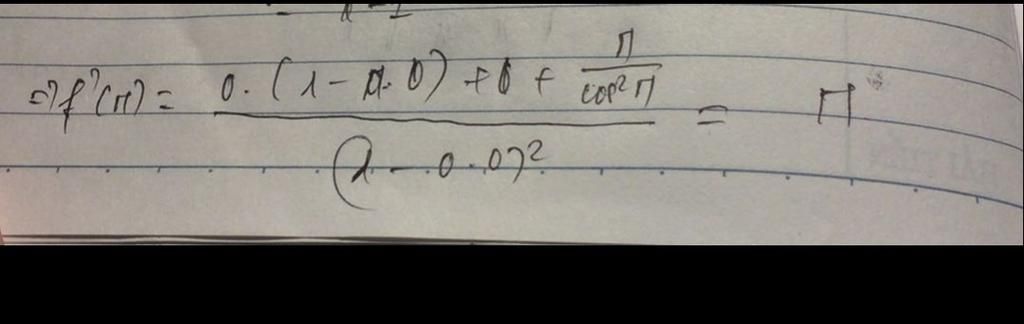 => f'(π) = \frac{0.(1-π.0)+0+\frac{π}{cos²π}}{(1-0.0)²} = π